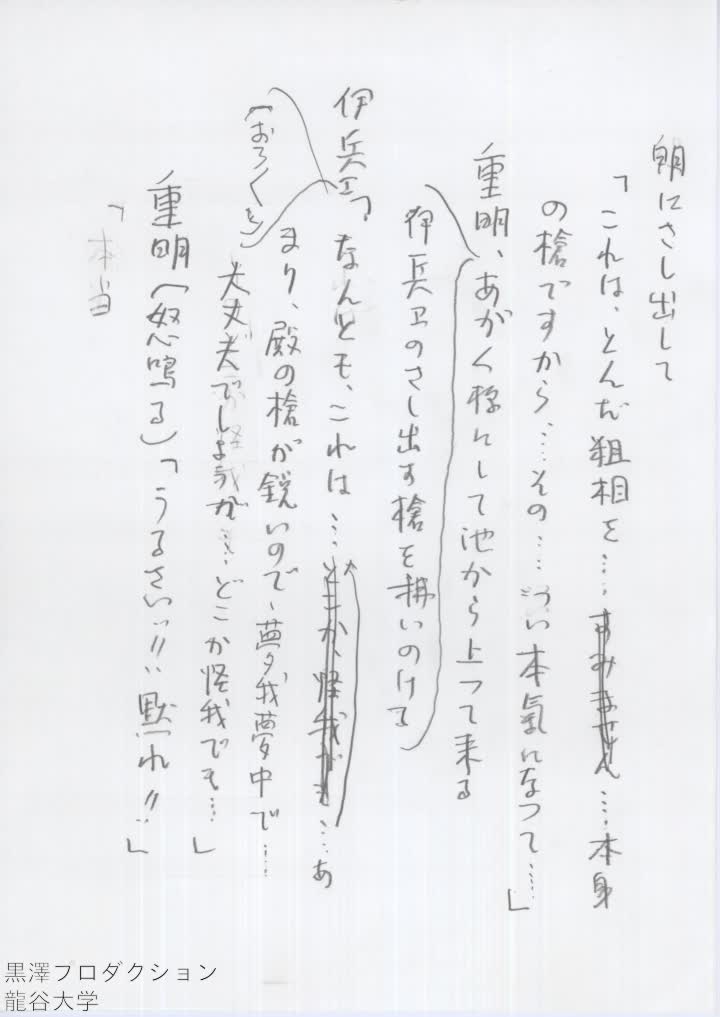 朗にさし出して
「これは、とんだ粗相を…すみません…本身
の槍ですから…その…つい本氣になつて…」
重明、あがく様にして池から上つて来る
伊兵卫のさし出す槍を拂いのける
伊兵卫「なんとも、これは…どこか、怪我がも…あ
(おろくと)
まり、殿の槍が鋭いので、夢我夢中で…
大丈夫でしようが…どこか怪我でも…」
重明(怒鳴る)「うるさい!!黙れ!!」
「本当
黒澤プロダクション
龍谷大学